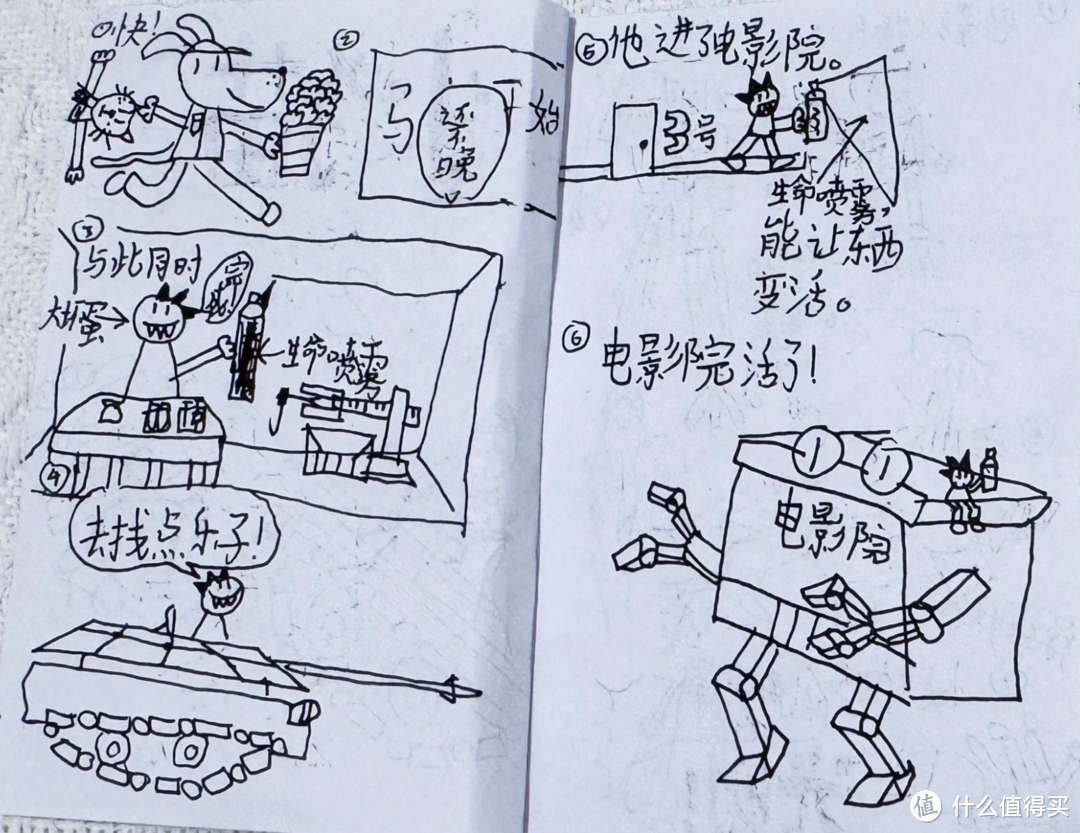 快!
②
马
始
还不晚
③
与此同时
大坏蛋
完成
生命喷雾
④
去找点乐子!
⑤他进了电影院。
3号
生命喷雾,
能让东西
变活。
⑥
电影院活了!
电影院
值 什么值得买